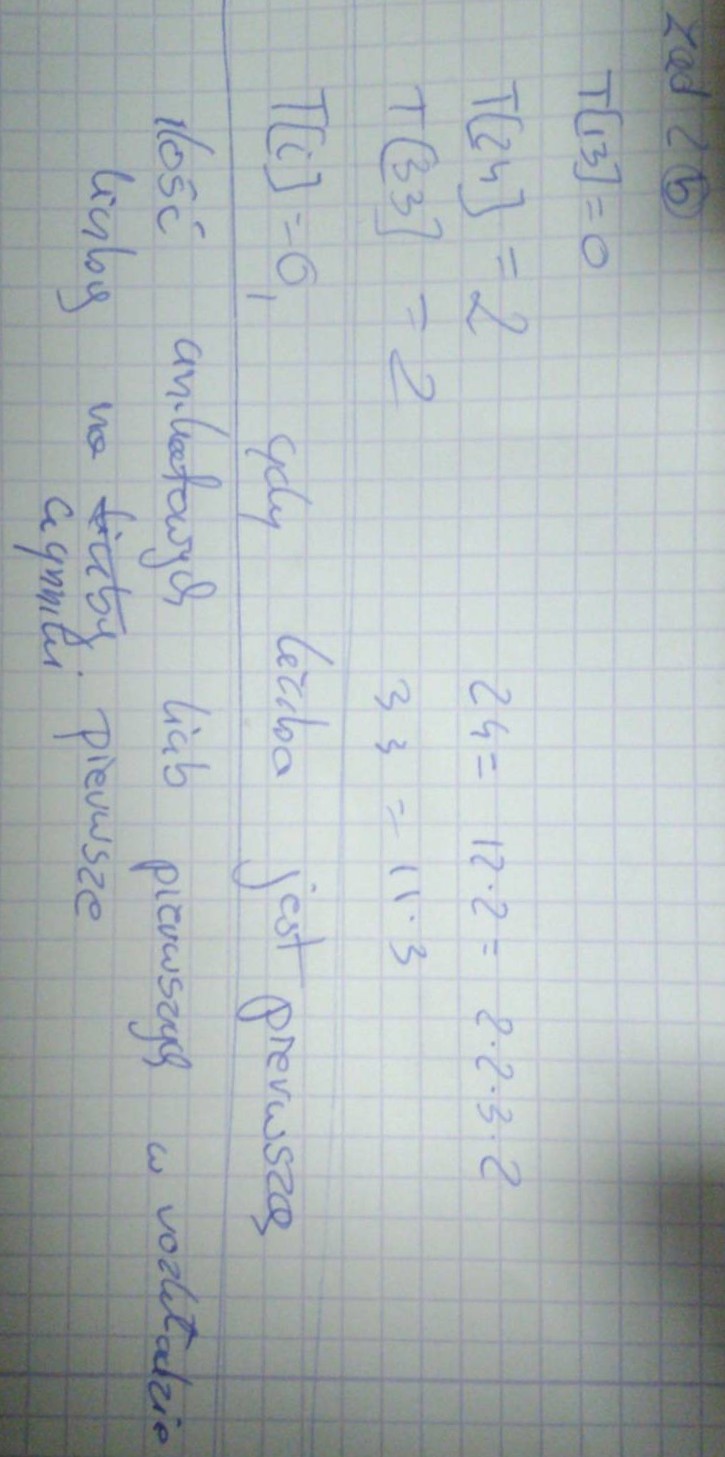 zad 2 b
T[13]=0
T[24] = 2 24= 12·2= 2·2·3·2
T[33] = 2 33 = 11·3
T[i]=0, gdy liczba jest pierwszą
ilość unikatowych liczb pierwszych w rozkładzie
liczby na liczby pierwsze
czynniki